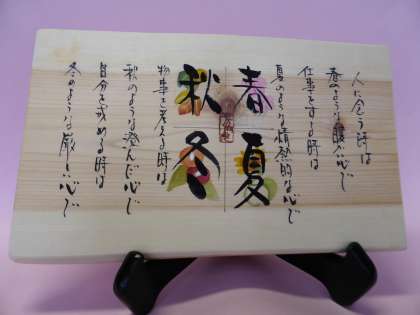 人に会う時は
春のような暖かい心で
仕事をする時は
夏のような情熱的な心で
春
夏
秋
冬
物事を考える時は
秋のような澄んだ心で
自分を戒める時は
冬のような厳しい心で